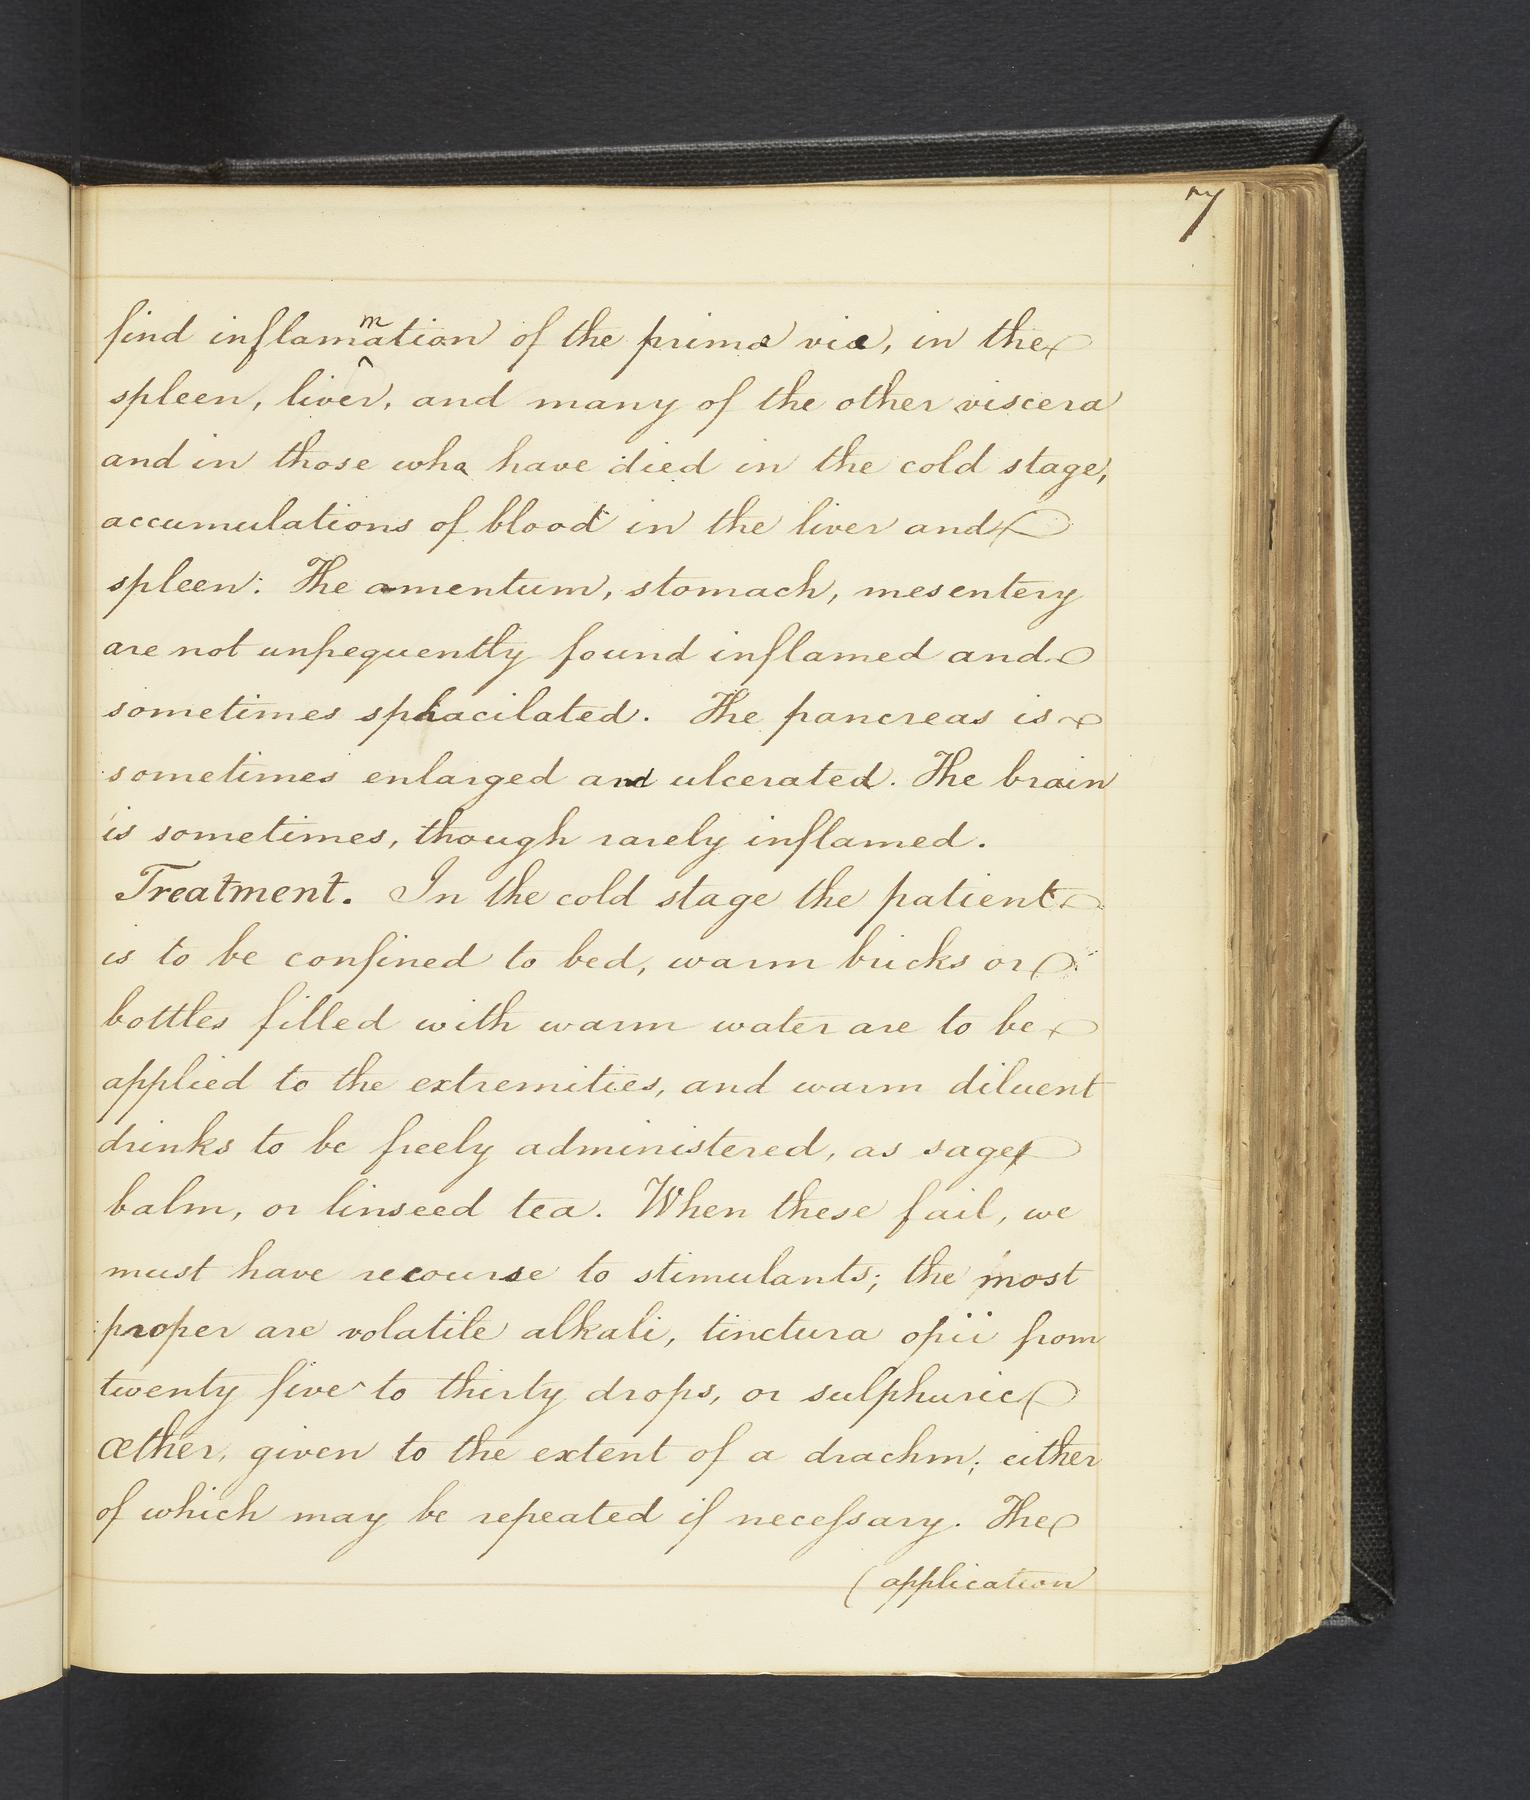 7
find inflammation of the primæ viæ, in the
spleen, liver, and many of the other viscera
and in those who have died in the cold stage,
accumulations of blood in the liver and
spleen: The omentum, stomach, mesentery
are not unfrequently found inflamed and
sometimes sphacilated. The pancreas is
sometimes enlarged and ulcerated. The brain
is sometimes, though rarely inflamed.
Treatment. In the cold stage the patient
is to be confined to bed, warm bricks or
bottles filled with warm water are to be
applied to the extremities, and warm diluent
drinks to be freely administered, as sage
balm, or linseed tea. When these fail, we
must have recourse to stimulants; the most
proper are volatile alkali, tinctura opii from
twenty five to thirty drops, or sulphuric
æther, given to the extent of a drachm; either
of which may be repeated if neceſsary. The
(application